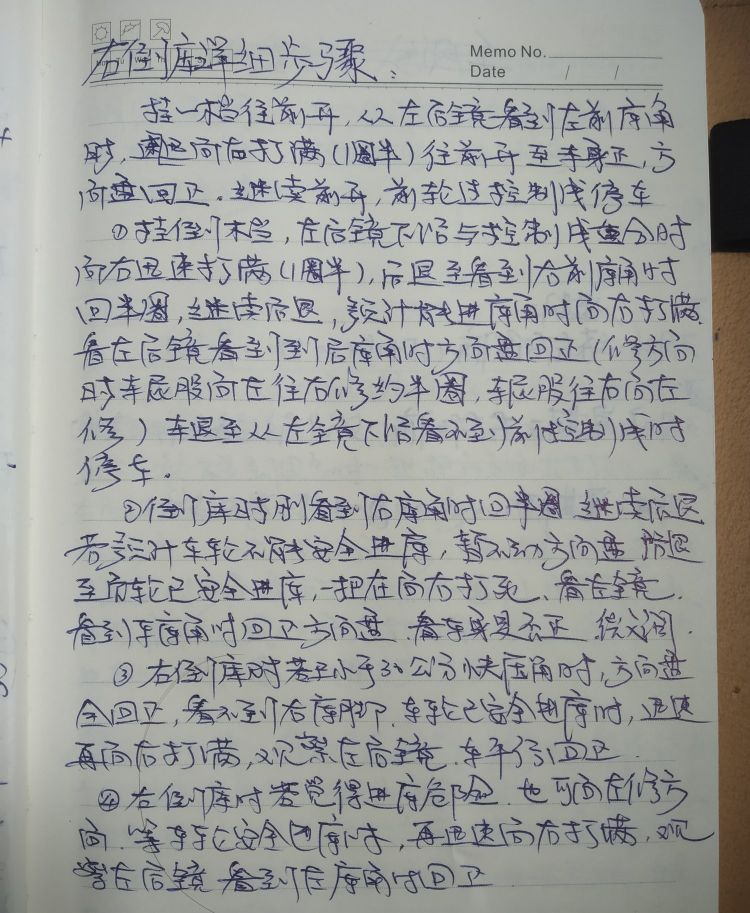 右倒库详细步骤:
Memo No.
Date / /
挂一档往前开,从左后镜看到左前库角
时,迅速向右打满(1圈半)往前开至车身正,方
向盘回正.继续前开,前轮过控制线停车
①挂倒档,左后镜下沿与控制线重合时
向右迅速打满(1圈半),后退至看到右前库角时
回半圈,继续后退,预计能进库角时向右打满.
看左后镜看到左后库角时方向盘回正(修方向
时车屁股向左往右修约半圈,车屁股往右向左
修)车退至从左镜下沿看不到前控制线时
停车.
②倒库时刚看到右库角时回半圈 继续后退
若预计车轮不能安全进库,暂不动方向盘
至后轮已安全进库,一把向右打死、看左镜,
看到库角时回正方向盘.看车身是否正
③右倒库时若小于30公分快压角时,方向盘
全回正,看不到右库脚.车轮已安全进库时,迅速
再向右打满,观察左后镜.车平行回正
④右倒库时若觉得进库危险.也可向左修方
向.等车轮安全进库时,再迅速向右打满,观
察左后镜看到左库角时回正